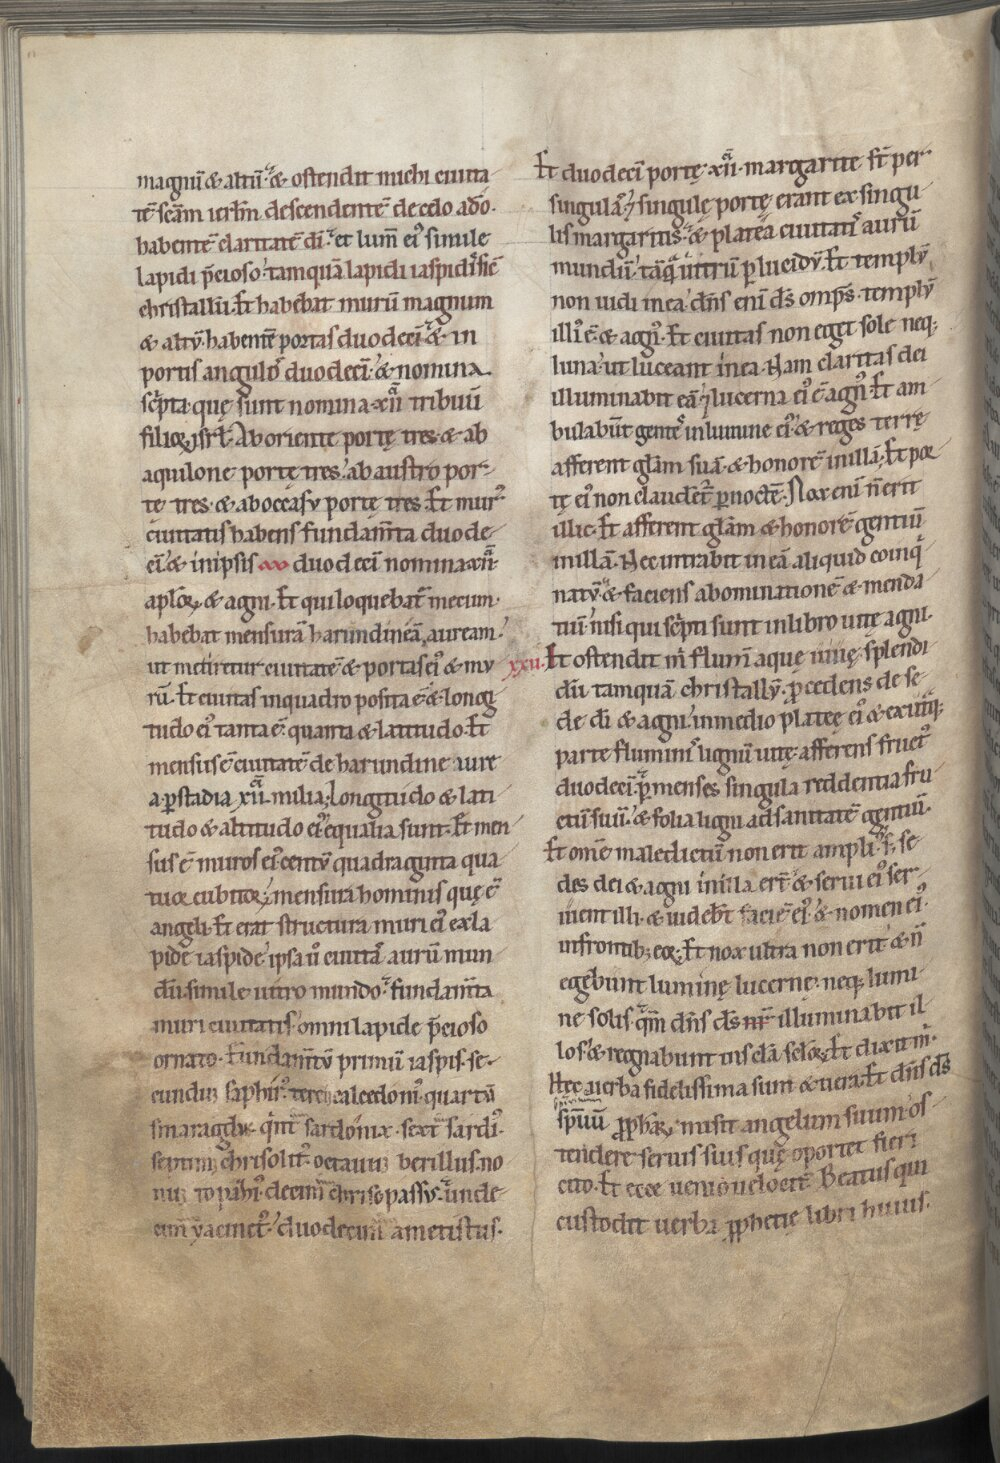 magnū & altū. & ostendit michi ciuita
tē sc̄am ierlm̄ descendentē de celo a dō.
habentē claritatē dī. et lum̄ eiꝰ simile
lapidi p̄cioso tamquā lapidi iaspidis sic̄
christallū. Et habebat murū magnum
& altū. habentē portas duodecī. & in
portis angulos duodecī. & nomina
sc̄pta. quę sunt nomina xii tribuū
filioꝝ isrl̄. Ab oriente portę tres. & ab
aquilone portę tres. ab austro por-
tę tres. & ab occasu portę tres. Et murꝰ
ciuitatis habens fundam̄ta duode-
cī. & in ipsis duodecī nomina xii
aplōꝝ. & agni. Et qui loquebat̄ mecum.
habebat mensurā harundineā auream.
ut metiretur ciuitatē & portas eiꝰ & mu
rū. Et ciuitas in quadro posita ē. & longi
tudo eiꝰ tanta ē. quanta & latitudo. Et
mensus ē ciuitatē de harundine aure
a. ꝑ stadia xii milia. Longitudo & lati
tudo & altitudo eiꝰ equalia sunt. Et men
sus ē muros eiꝰ centū quadraginta qua
tuor cubitoꝝ. mensura hominis quę ē
angeli. Et erat structura muri eiꝰ ex la
pide iaspide. ipsa ů ciuitas aurū mun
dū. simile uitro mundo. fundam̄ta
muri ciuitatis omni lapide p̄cioso
ornato. Fundam̄tū primū iaspis. se-
cundus saphirꝰ. terciꝰ calcedoniꝰ. quartꝰ
smaragdus. qint sardonix. sextꝰ sardiꝰ.
septimꝰ chrisolitꝰ. octauus berillus. no
nus topaziꝰ. decimꝰ chrisopassus. unde-
cimꝰ yacinctꝰ. duodecimꝰ ametistus.
Et duodecī portę. xii. margarite st̄ per
singulas. & singulę portę erant ex singu
lis margaritis. & platea ciuitatis aurū
mundū. tāq uitrū ꝑlucidū. Et templū
non uidi in ea. dn̄s enī ds̄ omp̄s. templū
illiꝰ ē. & agnꝰ. Et ciuitas non eget sole neqꝫ
luna. ut luceant in ea. Nam claritas dei
illuminabit eā. & lucerna eiꝰ ē agnꝰ. Et am
bulabūt gentes in lumine eiꝰ. & reges terrę
afferent glām suā. & honorē in illā. Et por
tę eiꝰ non claudent̄ ꝑ noctē. Nox enī n̄ erit
illic. Et afferent glām & honorē gentiū
in illā. Nec intrabit in eā aliquid coinq
natū. & faciens abominationē & menda
tiū. nisi qui sc̄pti sunt in libro uitę agni.
xxii. Et ostendit m̄ flum̄ aquę uiuę splendi
dū. tamquā christallū. ꝓcedens de se-
de dī & agni. in medio plateę eiꝰ. & ex utqꝫ
parte fluminis lignū uitę. afferens fructꝰ
duodecī. ꝑ menses singula reddentia fru
ctū suū. & folia ligni ad sanitatē gentiū.
Et omē maledictū non erit ampliꝰ. s; se-
des dei & agni in illa erūt. & serui eiꝰ ser-
uient illi. & uidebt̄ faciē eiꝰ. & nomen eiꝰ
in frontibꝫ eoꝝ. Et nox ultra non erit. & n̄
egebunt luminę lucernę. neqꝫ lumi-
ne solis. qm̄ dn̄s ds̄ nr̄ illuminabit il
los. & regnabunt in scla sclōꝝ. Et dixit m̄.
Hec uerba fidelissima sunt & uera. Et dn̄s ds̄
sp̄uū ꝓphaꝝ. misit angelum suum os-
tendere seruis suis quę oportet fieri
cito. Et ecce uenio uelocit̄. Beatus qui
custodit uerba ꝓphetię libri huius.